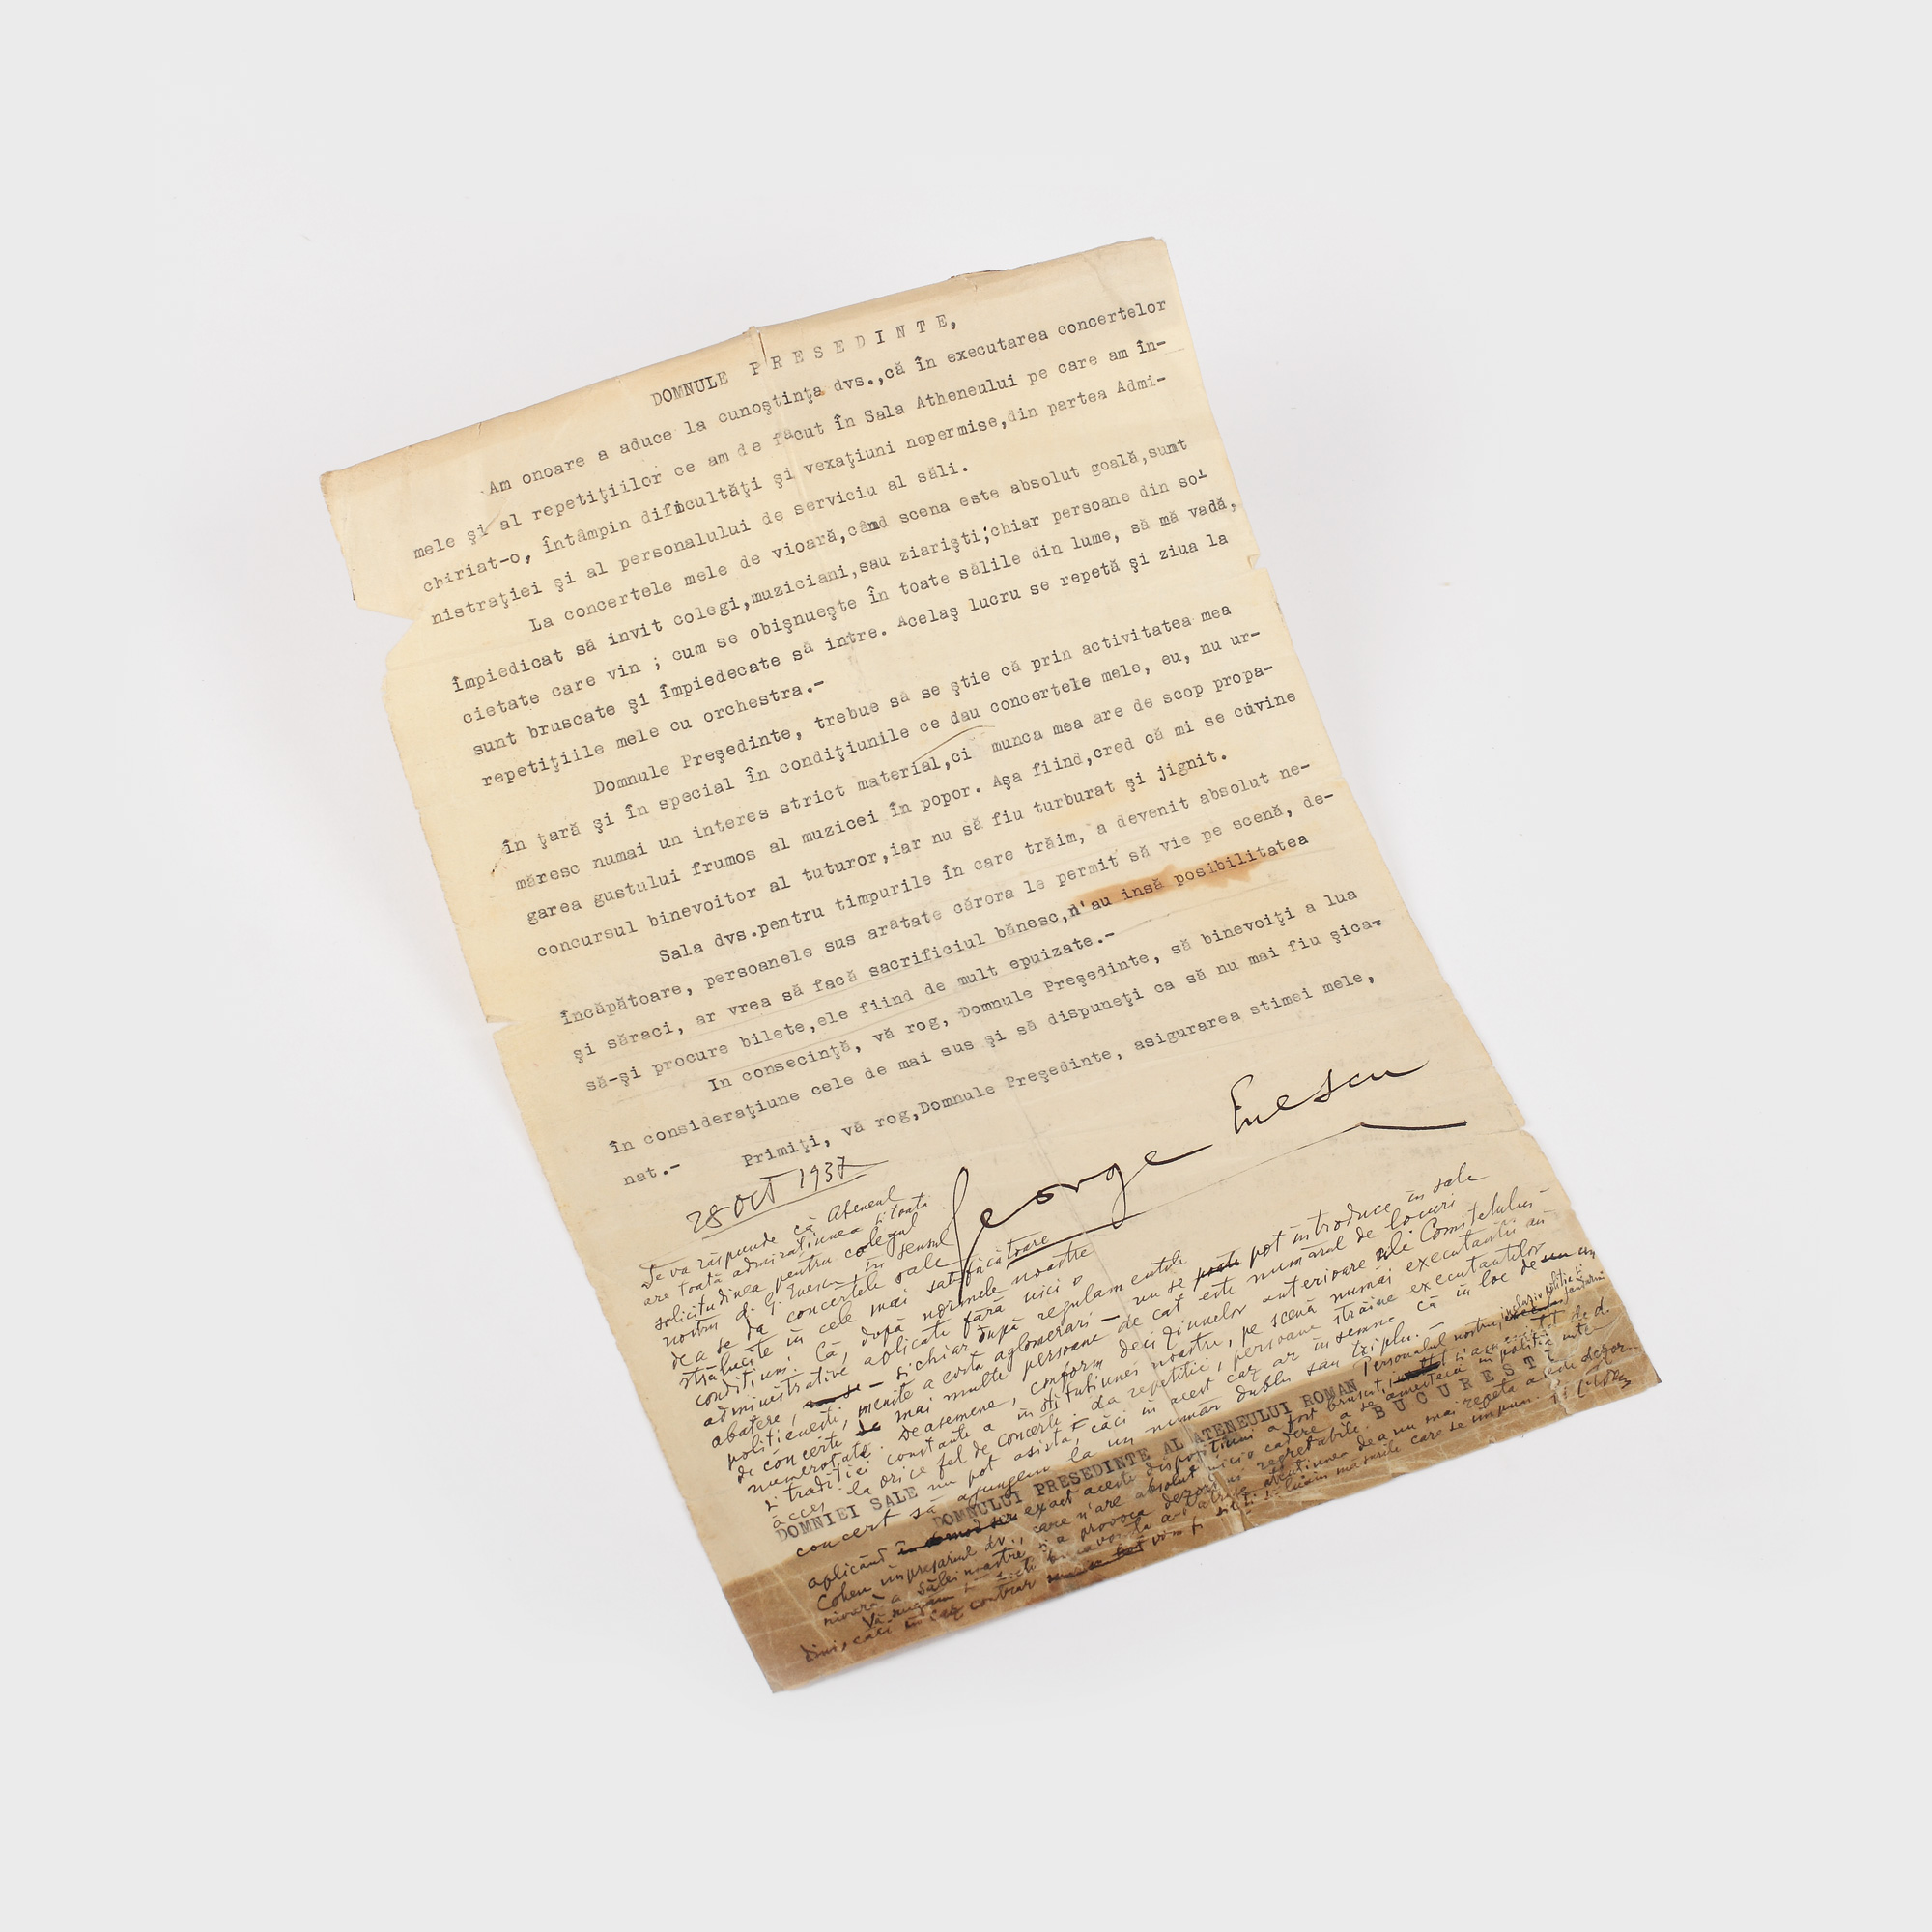 DOMNULE P R E S E D I N T E,
Am onoare a aduce la cunoştinţa dvs.,că în executarea concertelor
mele şi al repetiţiilor ce am de făcut în Sala Atheneului pe care am în-
chiriat-o, întâmpin dificultăţi şi vexaţiuni nepermise,din partea Admi-
nistraţiei şi al personalului de serviciu al săli.
La concertele mele de vioară,când scena este absolut goală,sunt
împiedicat să invit colegi,muziciani,sau ziarişti;chiar persoane din so-
cietate care vin ; cum se obişnueşte în toate sălile din lume, să mă vadă,
sunt bruscate şi împiedecate să intre. Acelaş lucru se repetă şi ziua la
repetiţiile mele cu orchestra.-
Domnule Preşedinte, trebue să se ştie că prin activitatea mea
în ţară şi în special în condiţiunile ce dau concertele mele, eu, nu ur-
măresc numai un interes strict material,ci munca mea are de scop propa-
garea gustului frumos al muzicei în popor. Aşa fiind,cred că mi se cuvine
concursul binevoitor al tuturor,iar nu să fiu turburat şi jignit.
Sala dvs.pentru timpurile în care trăim, a devenit absolut ne-
încăpătoare, persoanele sus arătate cărora le permit să vie pe scenă, de-
şi săraci, ar vrea să facă sacrificiul bănesc,n'au insă posibilitatea
să-şi procure bilete,ele fiind de mult epuizate.-
In consecinţă, vă rog, Domnule Preşedinte, să binevoiţi a lua
în consideraţiune cele de mai sus şi să dispuneţi ca să nu mai fiu şica-
nat.-
Primiţi, vă rog,Domnule Preşedinte, asigurarea stimei mele,
George Enescu
28 Oct 1937
Se va răspunde că Ateneul
are toată admiraţiunea şi toata
solicitudinea pentru colegul
nostru dl. G. Enescu, în sensul
de a se da concertele sale
strălucite în cele mai satisfăcătoare
condiţiuni. Că, după normele noastre
administrative aplicate fără nici o
abatere, – şi chiar după regulamentele
poliţieneşti, menite a evita aglomerări – nu se pot introduce în sale
de concerte mai multe persoane de cat este numărul de locuri
numerotate. Deasemene, conform deciziunelor anterioare ale Comitetului
şi tradiţiei constante a instituţiunei noastre, pe scenă numai executanţii au
acces la orice fel de concerte. La repetiţii, persoane străine executanţilor
nu pot asista, căci in acest caz ar însemna că în loc de un
concert să ajungem la un număr dublu sau triplu. – Personalul nostru,
DOMNIEI SALE
DOMNULUI PRESEDINTE AL ATENEULUI ROMAN
B U C U R E S T I
aplicând exact aceste dispoziţiuni a fost bruscat,
Cohen impresarul dv., care n'are absolut nicio cadere a se amesteca in poliţia
a sălei noastre şi a provoca dezordini regretabile.
Vă rugăm să binevoiţi a-i atrage atenţiunea de a nu mai repeta aceste dezor-
dini, căci în caz contrar vom fi siliţi să luăm masurile care se impun.